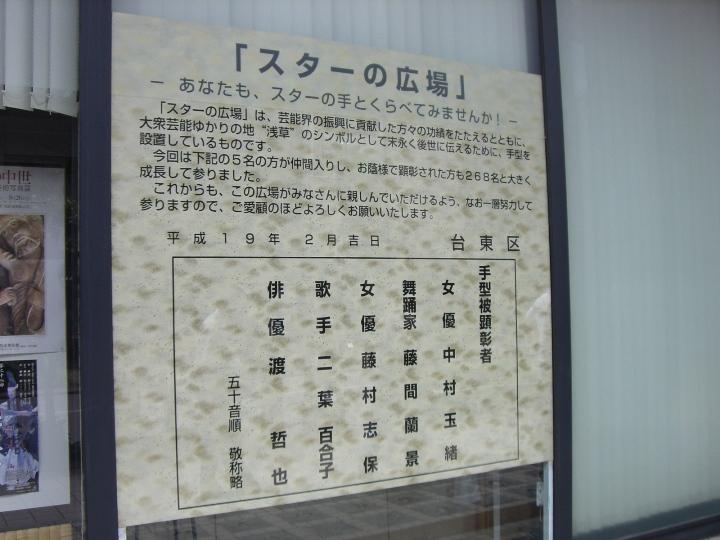 「スターの広場」
－ あなたも、スターの手とくらべてみませんか！－
「スターの広場」は、芸能界の振興に貢献した方々の功績をたたえるとともに、
大衆芸能ゆかりの地“浅草”のシンボルとして末永く後世に伝えるために、手型を
設置しているものです。
今回は下記の５名の方が仲間入りし、お蔭様で顕彰された方も２６８名と大きく
成長して参りました。
これからも、この広場がみなさんに親しんでいただけるよう、なお一層努力して
参りますので、ご愛顧のほどよろしくお願いいたします。
平成１９年 ２月吉日
台東区
手型被顕彰者
女優 中村玉緒
舞踊家 藤間蘭景
女優 藤村志保
歌手 二葉百合子
俳優 渡哲也
五十音順 敬称略
中世